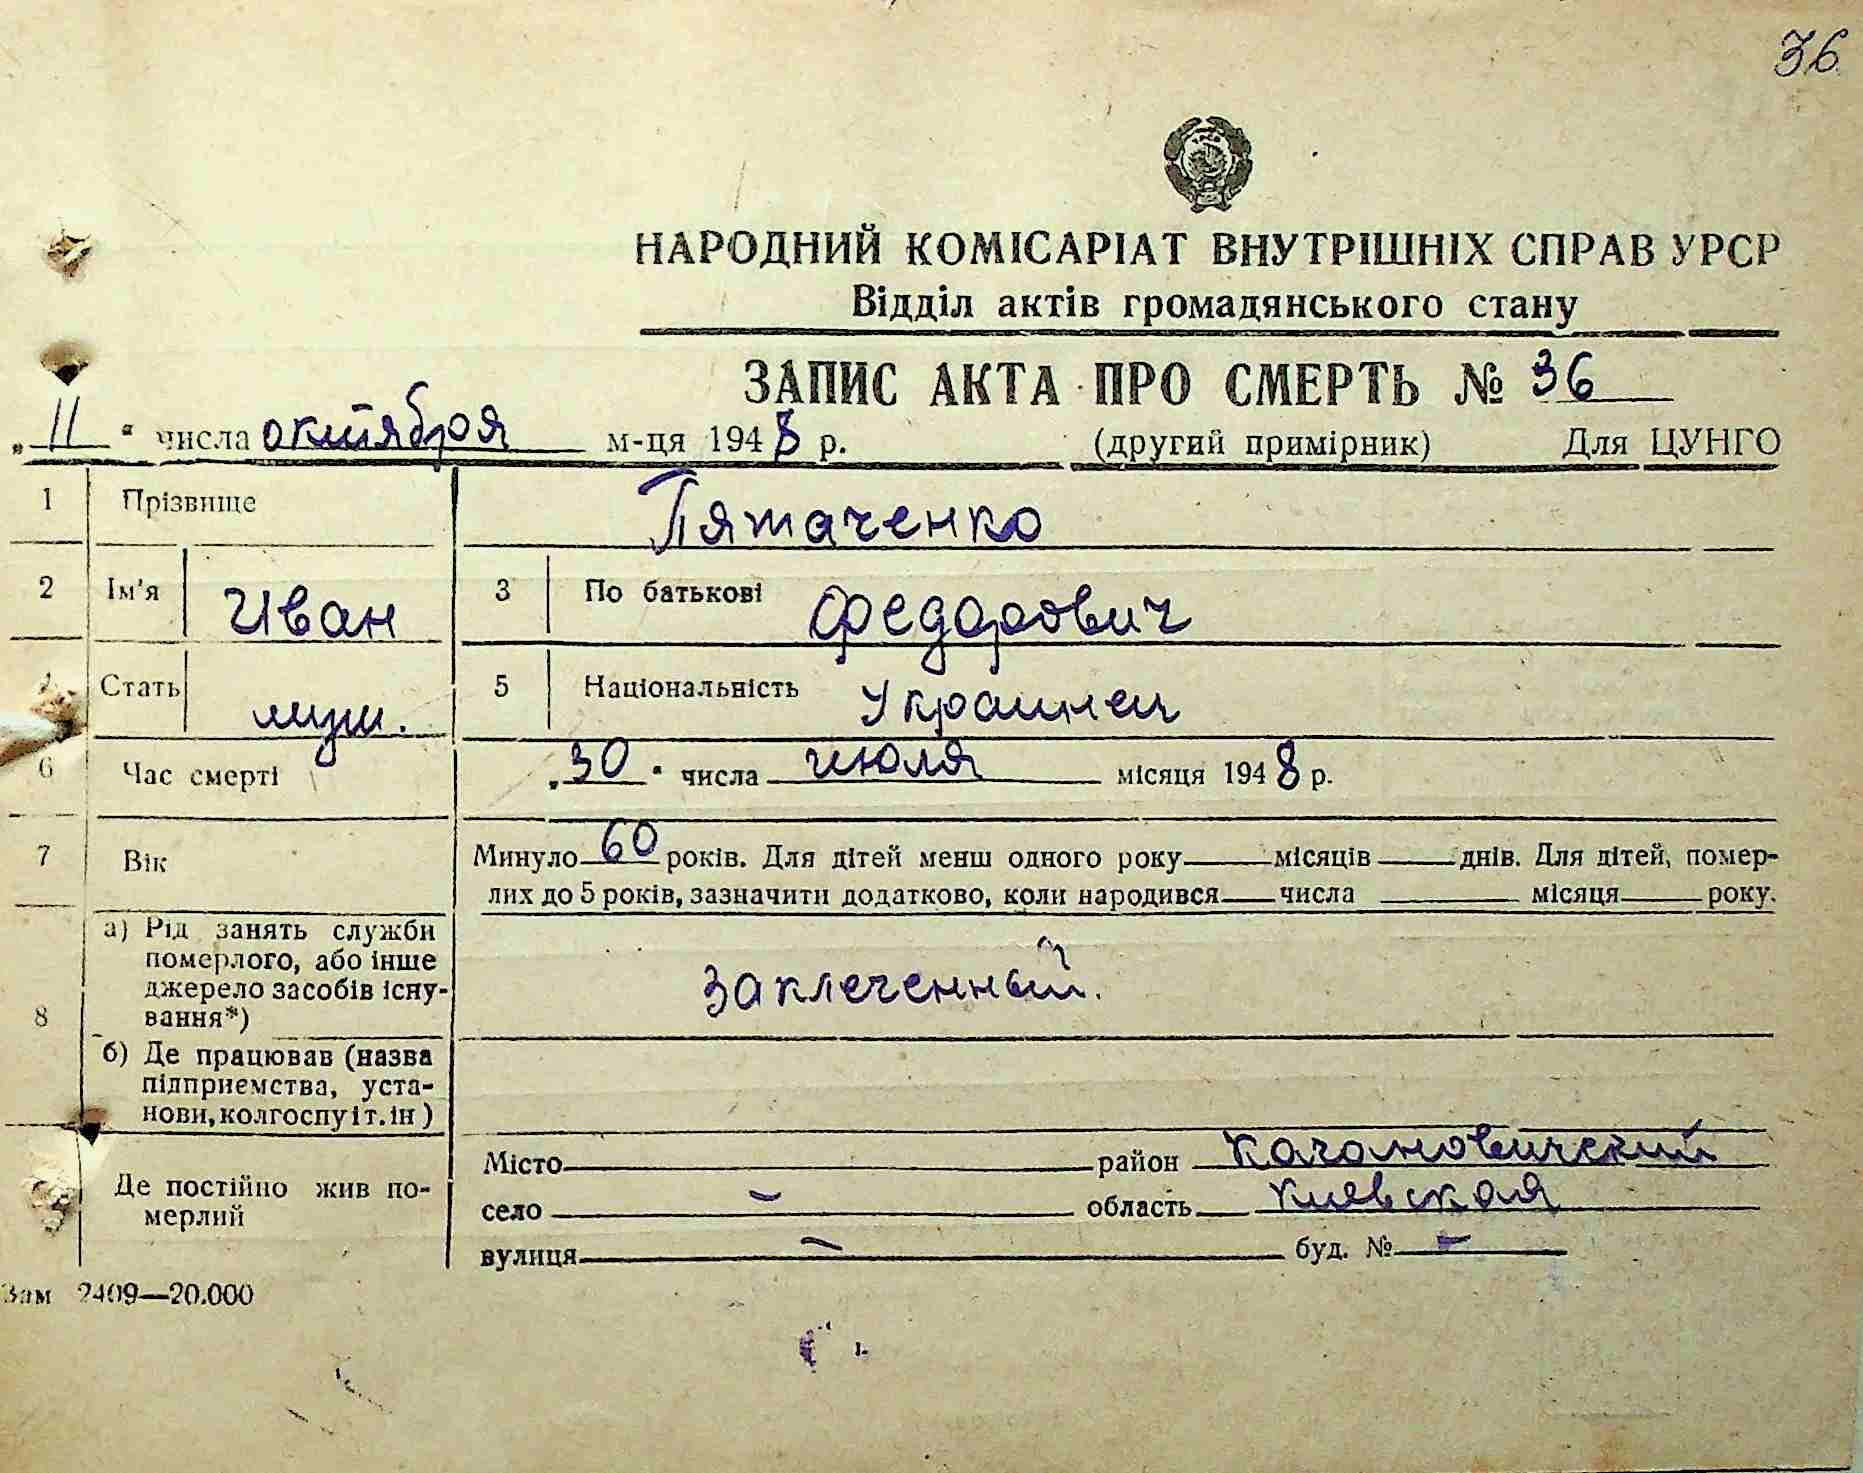 36
НАРОДНИЙ КОМІСАРІАТ ВНУТРІШНІХ СПРАВ УРСР
Відділ актів громадянського стану
ЗАПИС АКТА ПРО СМЕРТЬ № 36
„11“ числа октября м-ця 1948 р. (другий примірник) Для ЦУНГО
1 Прізвище Пятаченко
2 Ім'я Иван 3 По батькові Федорович
Стать муж. 5 Національність Украинец
6 Час смерті „30“ числа июля місяця 1948 р.
7 Вік Минуло 60 років. Для дітей менш одного року — місяців — днів. Для дітей, помер-
лих до 5 років, зазначити додатково, коли народився — числа — місяця — року.
8 а) Рід занять служби
померлого, або інше
джерело засобів існу-
вання*) заключенный.
б) Де працював (назва
підприємства, уста-
нови, колгоспу і т. ін)
Де постійно жив по-
мерлий
Місто район Кагановичский
село — область Киевская
вулиця — буд. № —
Зам 2409—20.000